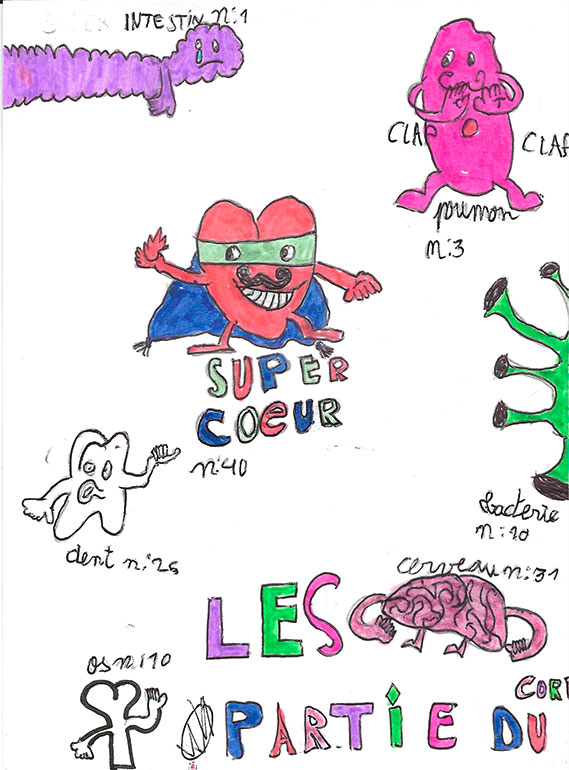 INTESTIN n:1
CLAP
CLAP
poumon
n:3
SUPER
COEUR
n:40
bacterie
n:10
dent n:26
cerveau n:31
LES
os n:10
CORP
PARTIE DU